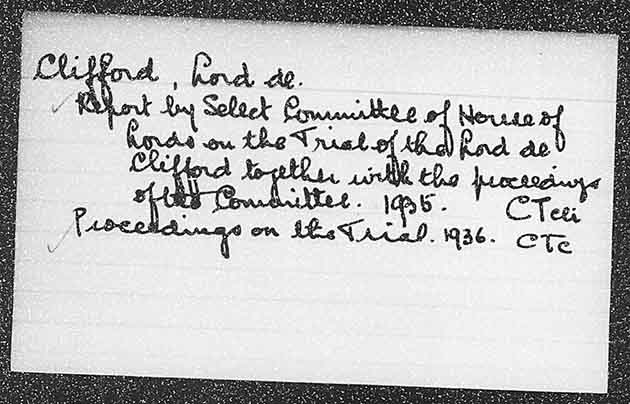 Clifford, Lord de.
Report by Select Committee of House of
Lords on the Trial of the Lord de
Clifford together with the proceedings
of the Committee. 1935. CTcii
Proceedings on the Trial. 1936. CTc